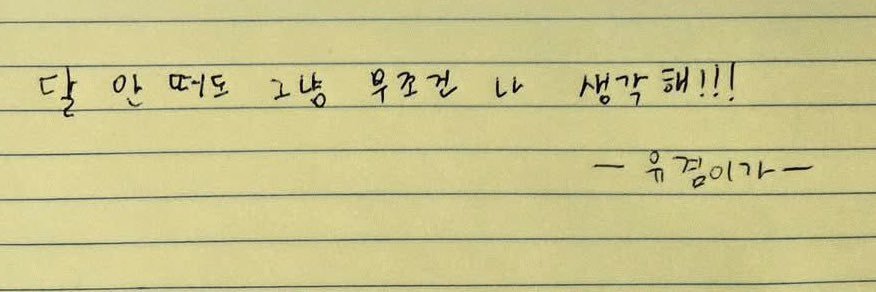 달 안 떠도 그냥 무조건 나 생각해!!!
- 유겸이가 -